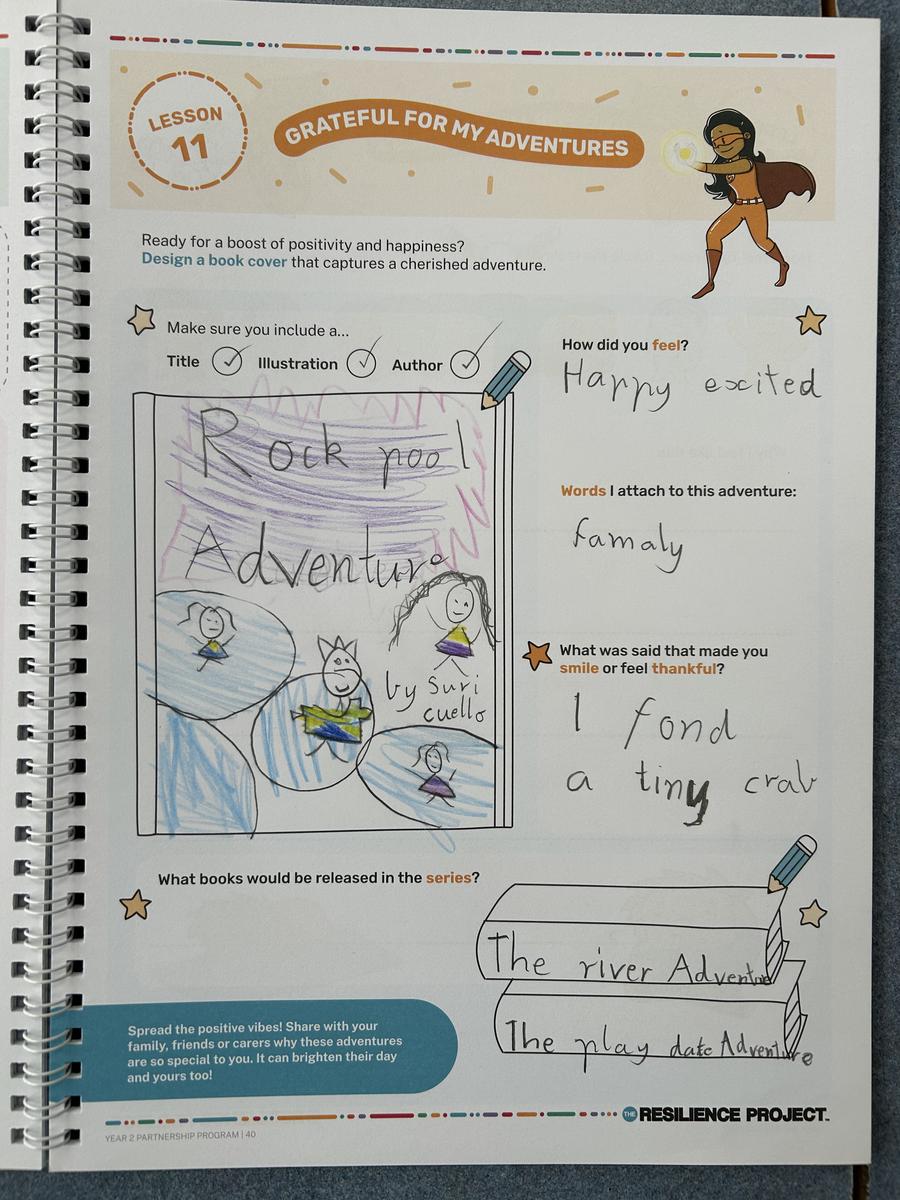 LESSON
11
GRATEFUL FOR MY ADVENTURES
Ready for a boost of positivity and happiness?
Design a book cover that captures a cherished adventure.
Make sure you include a...
Title Illustration Author
Rock pool
Adventure
by Suri
cuello
How did you feel?
Happy excited
Words I attach to this adventure:
famaly
What was said that made you
smile or feel thankful?
I fond
a tiny crab
What books would be released in the series?
The river Adventure
The play date Adventure
Spread the positive vibes! Share with your
family, friends or carers why these adventures
are so special to you. It can brighten their day
and yours too!
THE RESILIENCE PROJECT™
YEAR 2 PARTNERSHIP PROGRAM | 40